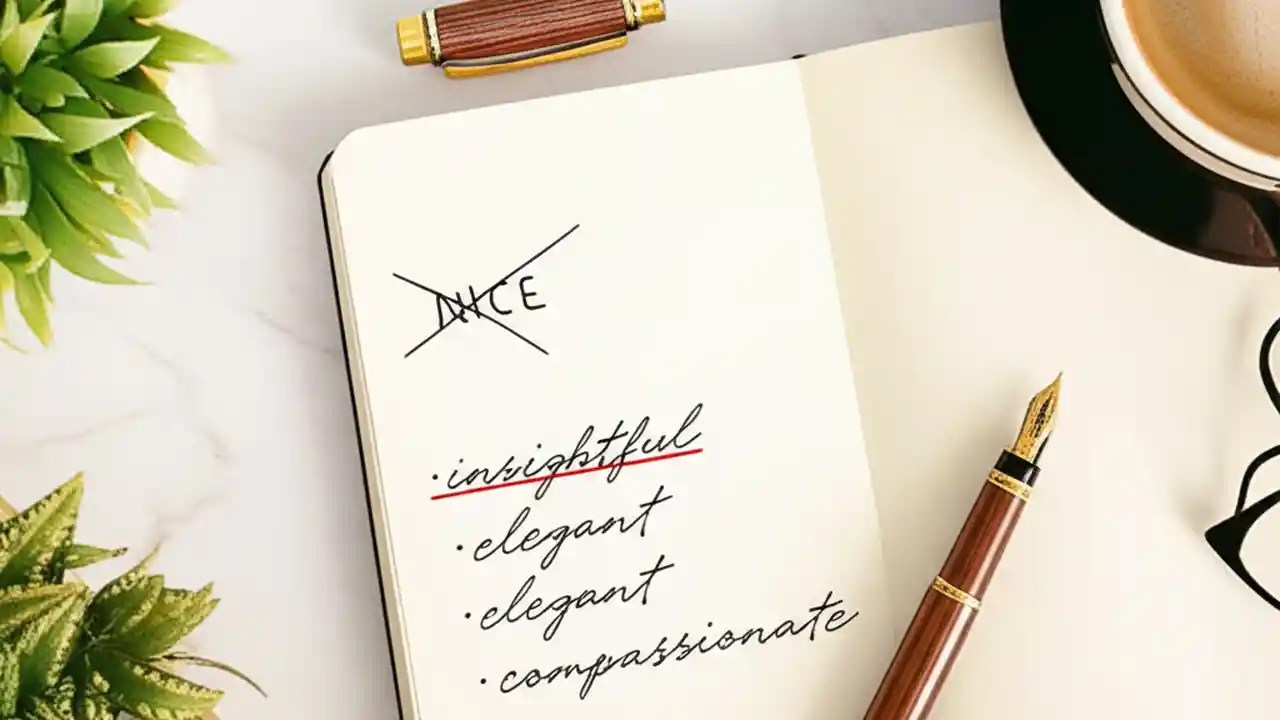 NICE
· insightful
· elegant
· elegant
· compassionate